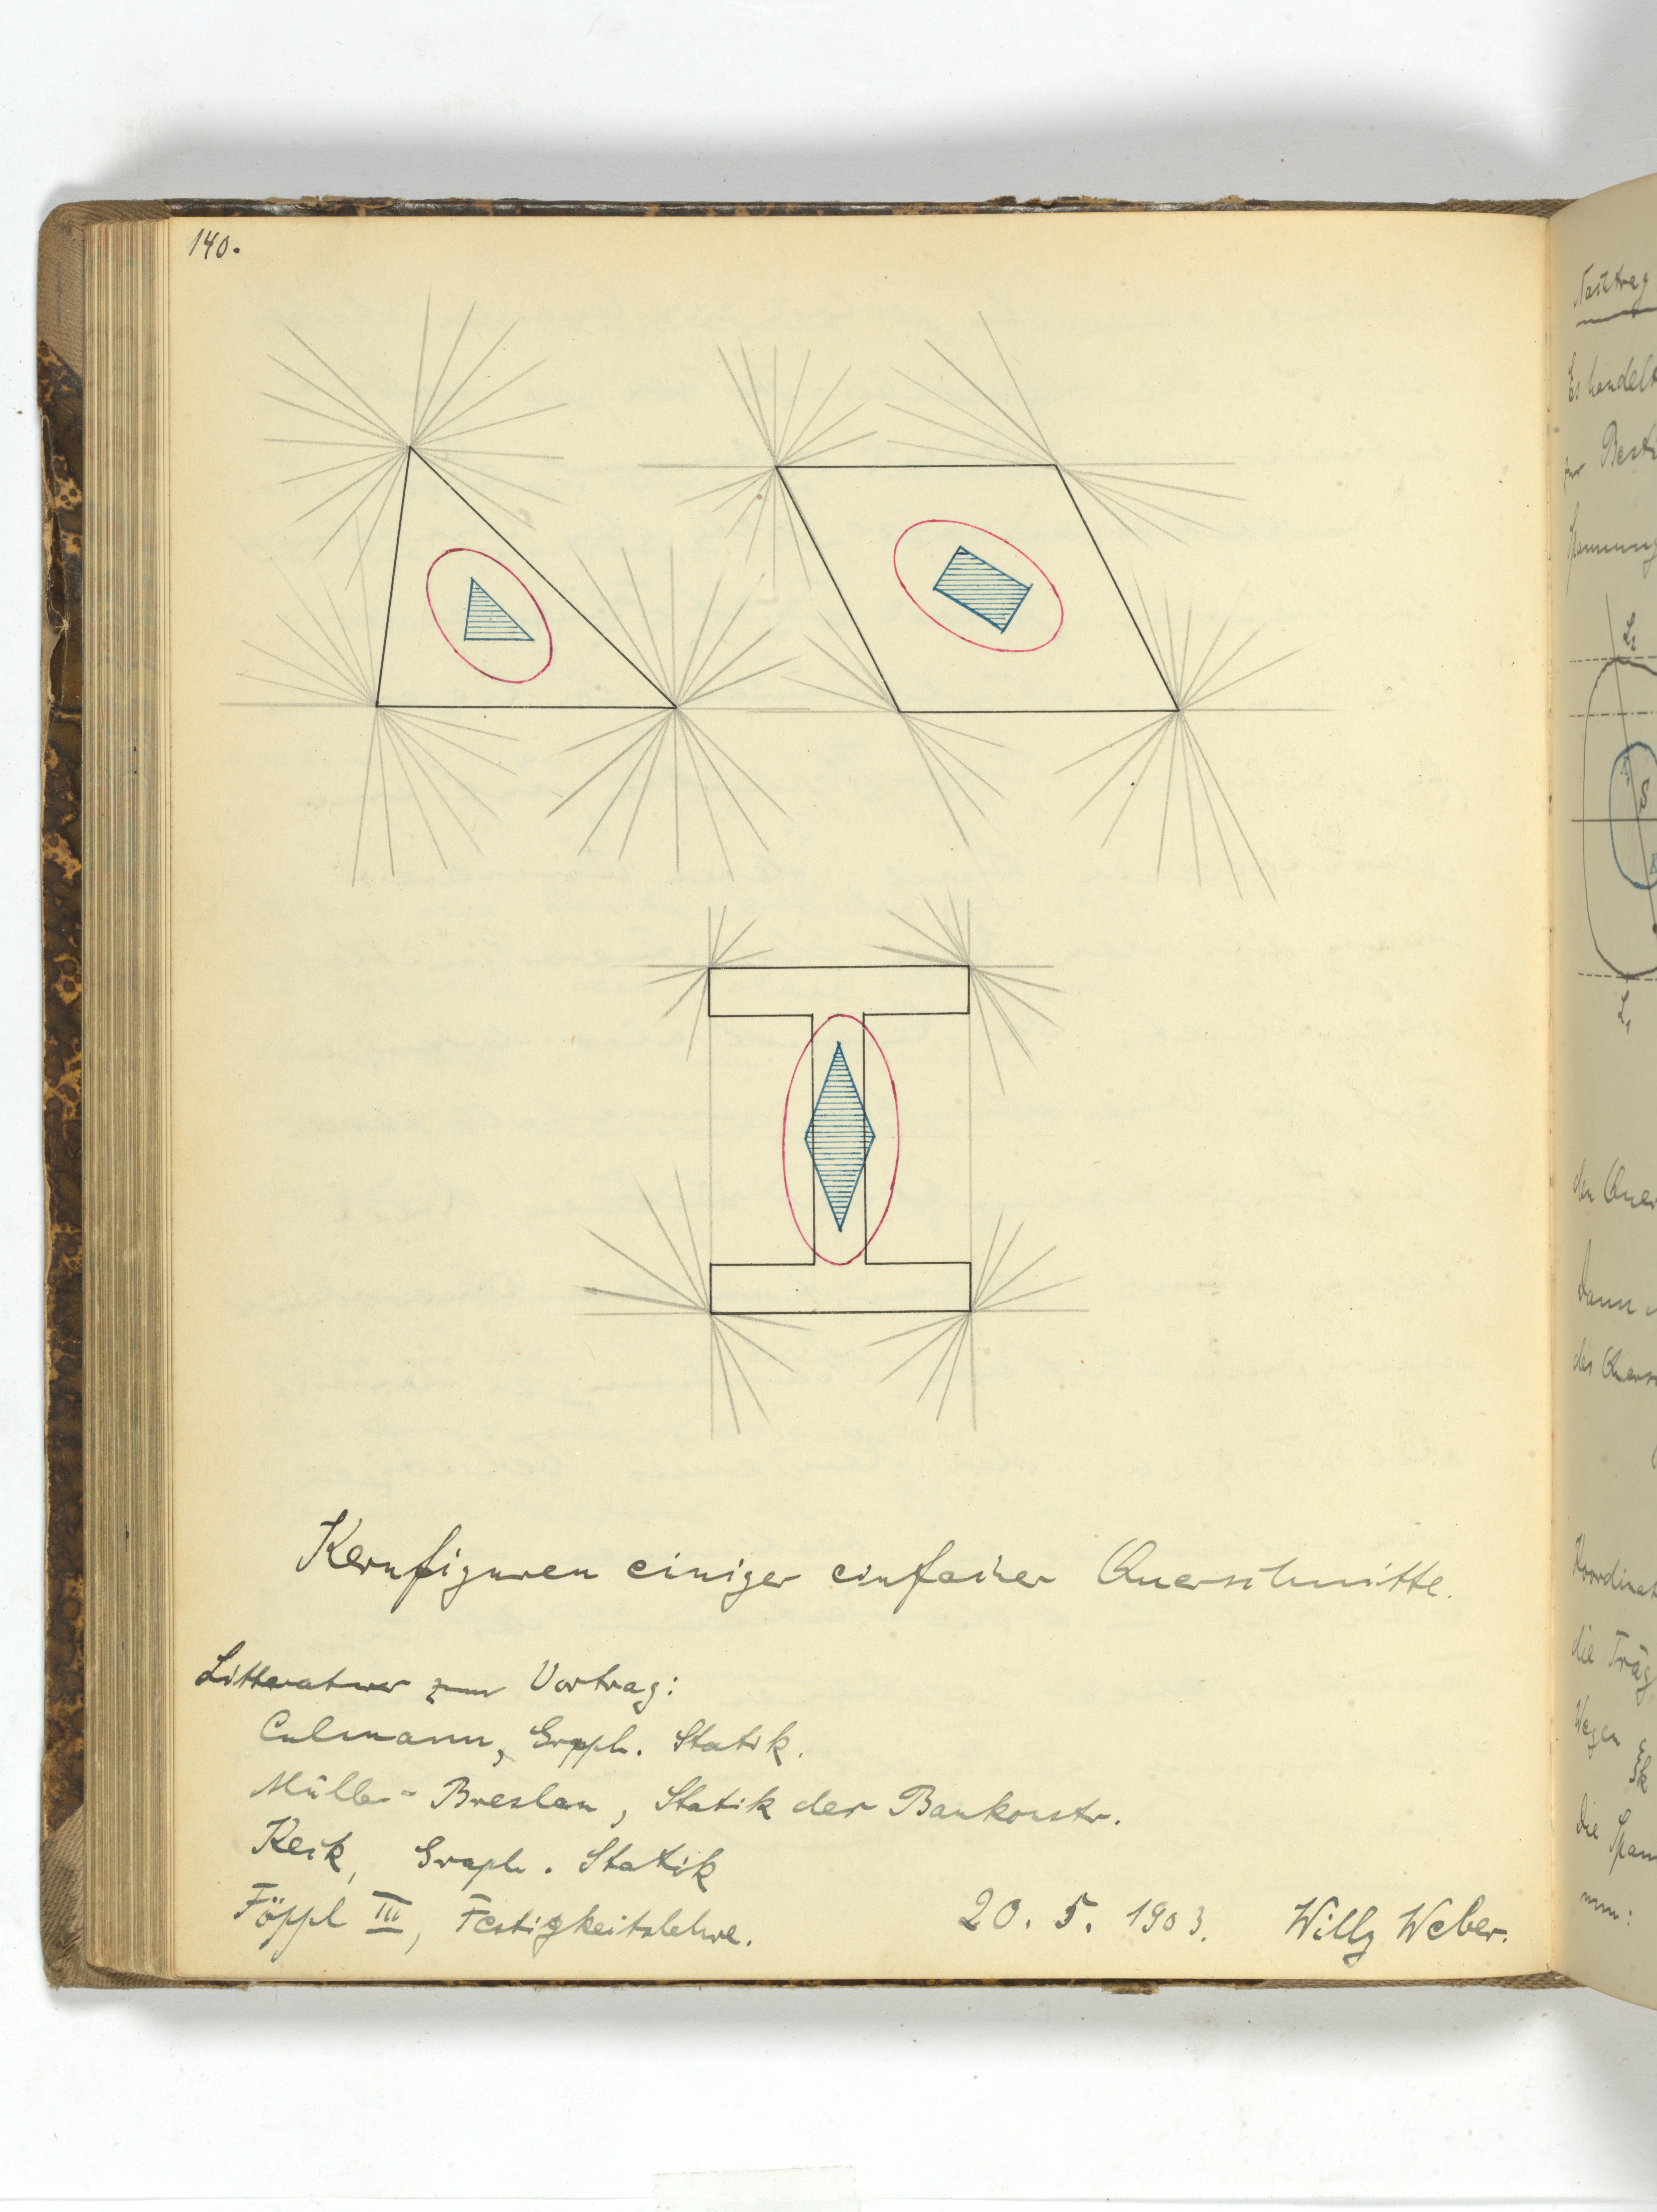 140.
Kernfiguren einiger einfacher Querschnitte.
Litteratur zum Vortrag:
Culmann, Graph. Statik.
Müller-Breslau, Statik der Baukonstr.
Keck, Graph. Statik
Föppl III, Festigkeitslehre.
20. 5. 1903. Willy Weber.
Nachtrag
Es handelt
zur
Spannung
L₂
S
L₁
den Quer
Dann
des Quers
Koordinat
die Träg
Wegen
die Span